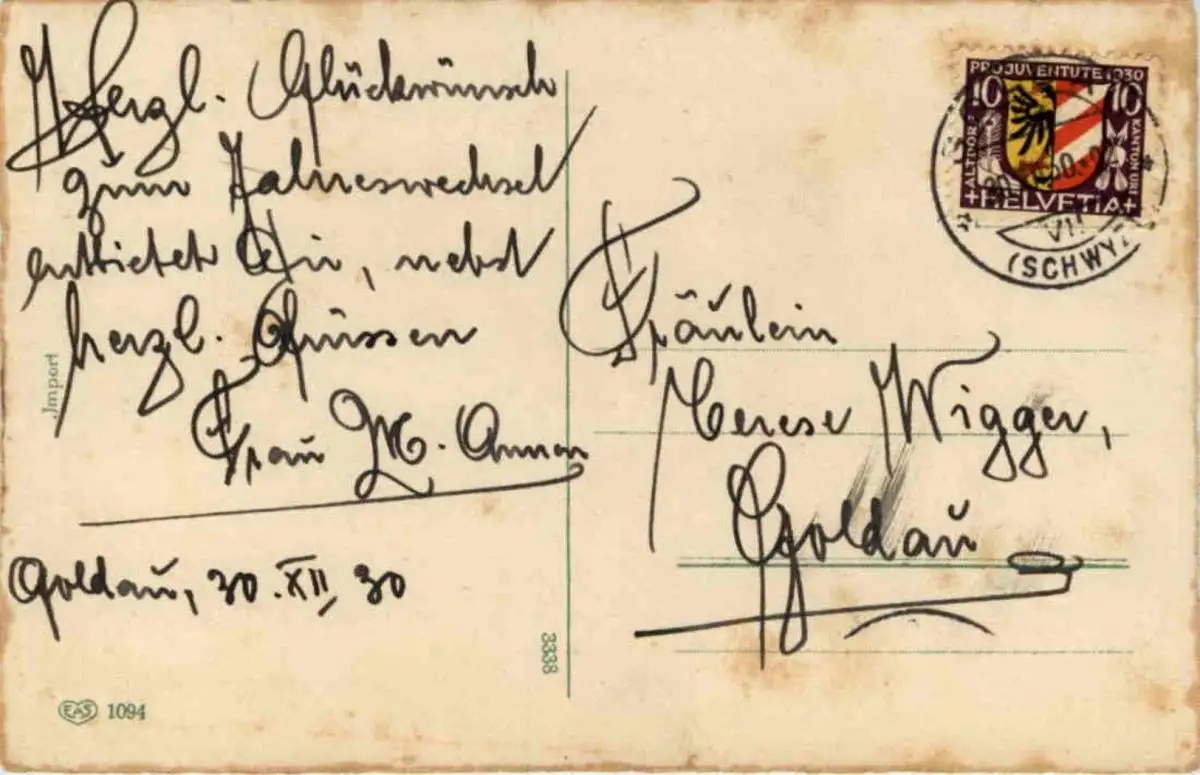 Herzl. Glückwünsch
zum Jahreswechsel
entbietet Dir, nebst
herzl. Grüssen
Frau M. Annen
Goldau, 30. XII. 30
Import
EAS 1094
3338
PRO JUVENTUTE 1930
10 10
ALTDORF
KANTON URI
+HELVETIA+
VII
(SCHWYZ)
Fräulein
Terese Wigger,
Goldau